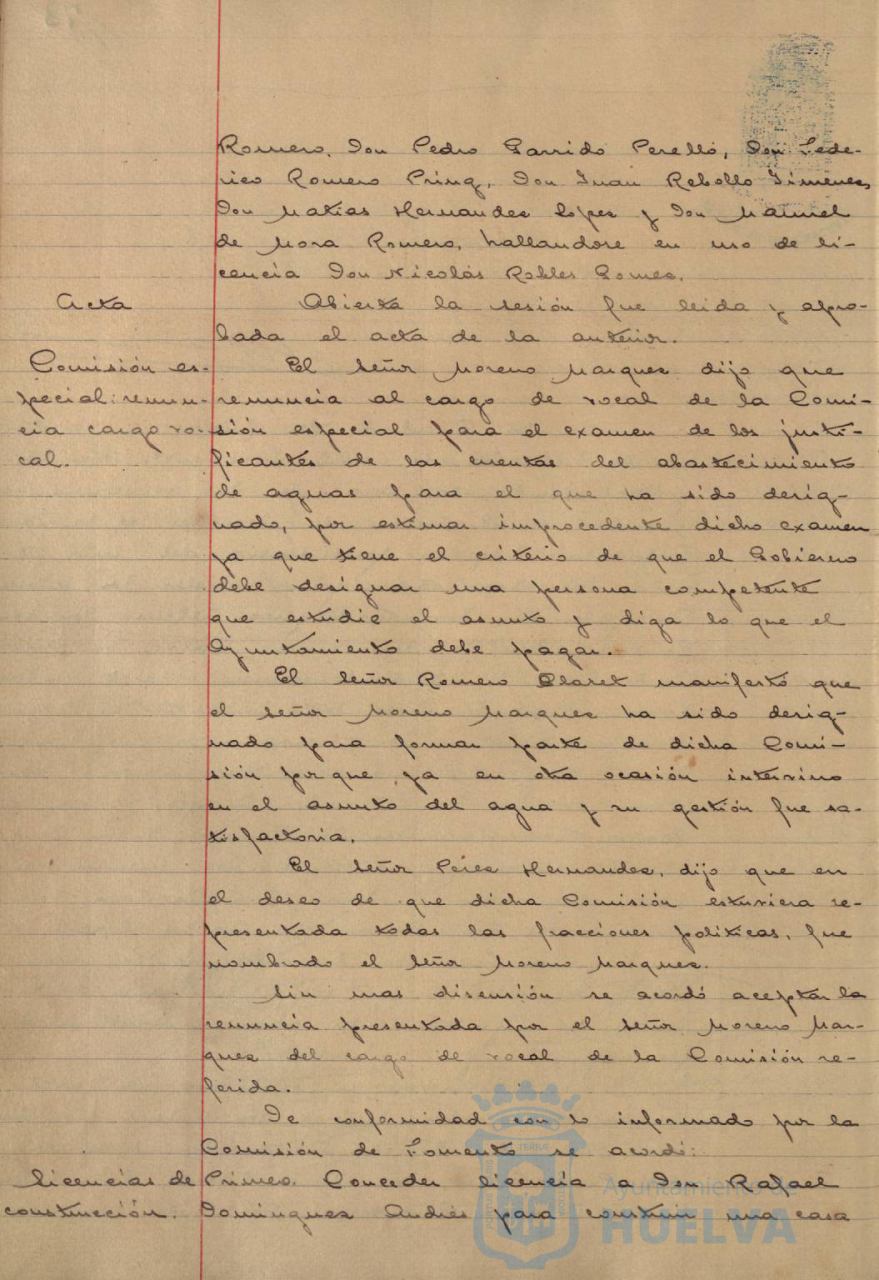 Romero, Don Pedro Garrido Perelló, Don Fede-
rico Romero Pring, Don Juan Rebollo Jiménez,
Don Matías Hernandez Lopez y Don Manuel
de Mora Romero, hallandose en uso de li-
cencia Don Nicolás Robles Gomez.
Acta
Abierta la sesión fue leida y apro-
bada el acta de la anterior.
Comisión es-
pecial: renun-
cia cargo vo-
cal.
El señor Moreno Marquez dijo que
renuncia al cargo de vocal de la Comi-
sión especial para el examen de los justi-
ficantes de las cuentas del abastecimiento
de aguas para el que ha sido desig-
nado, por estimar improcedente dicho examen
ya que tiene el criterio de que el Gobierno
debe designar una persona competente
que estudie el asunto y diga lo que el
Ayuntamiento debe pagar.
El señor Romero Claret manifestó que
el señor Moreno Marquez ha sido desig-
nado para formar parte de dicha Comi-
sión porque ya en otra ocasión intervino
en el asunto del agua y su gestión fue sa-
tisfactoria.
El señor Pérez Hernandez, dijo que en
el deseo de que dicha Comisión estuviera re-
presentada todas las fracciones políticas, fue
nombrado el señor Moreno Marquez.
Sin mas discusión se acordó aceptar la
renuncia presentada por el señor Moreno Mar-
quez del cargo de vocal de la Comisión re-
ferida.
De conformidad con lo informado por la
Comisión de Fomento se acordó:
Licencias de
construcción.
Primero. Conceder licencia a Don Rafael
Dominguez Andrés para construir una casa
Ayuntamiento de
HUELVA